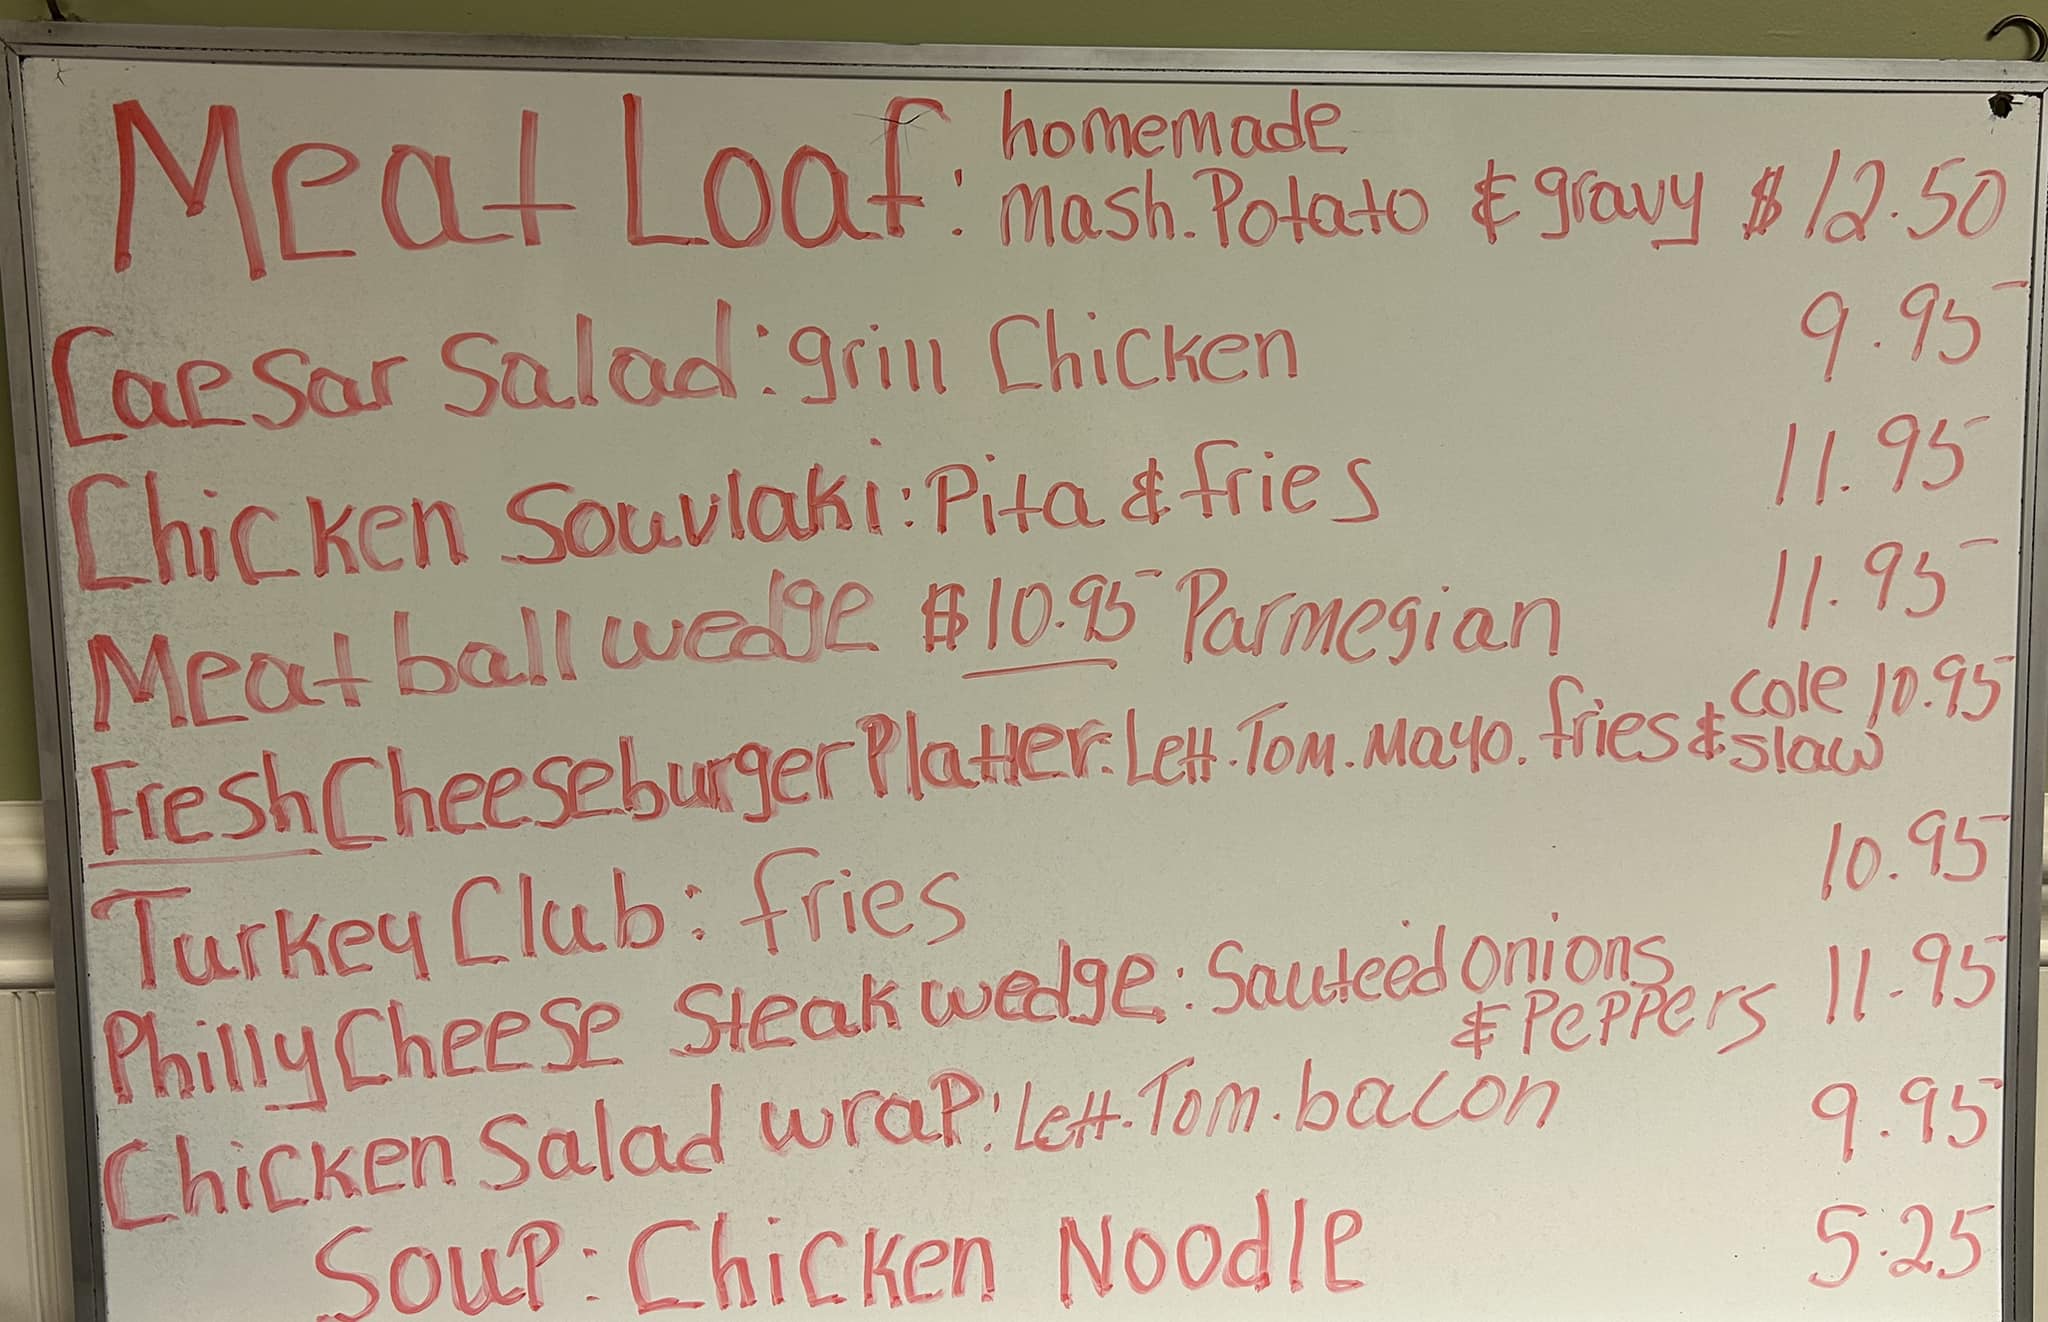 Meat Loaf: homemade
Mash. Potato & gravy $12.50
Caesar Salad: grill Chicken 9.95
Chicken Souvlaki: Pita & fries 11.95
Meatball wedge $10.95 Parmegian 11.95
Fresh Cheeseburger Platter: Lett. Tom. Mayo. fries & cole slaw 10.95
Turkey Club: fries 10.95
Philly Cheese Steak wedge: Sauteed onions
& Peppers 11.95
Chicken Salad wrap: Lett. Tom. bacon 9.95
Soup: Chicken Noodle 5.25